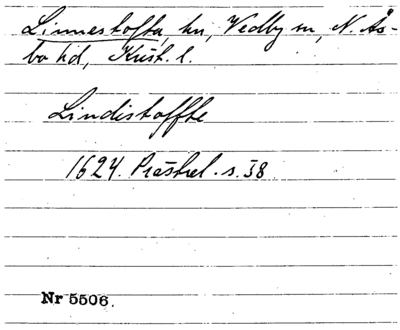 Linnestoffa, hn, Vedby sn, N. Ås-
bo hd, Krist. l.
Lindistoffte
1624. Prästrel. s. 38
Nr 5506.